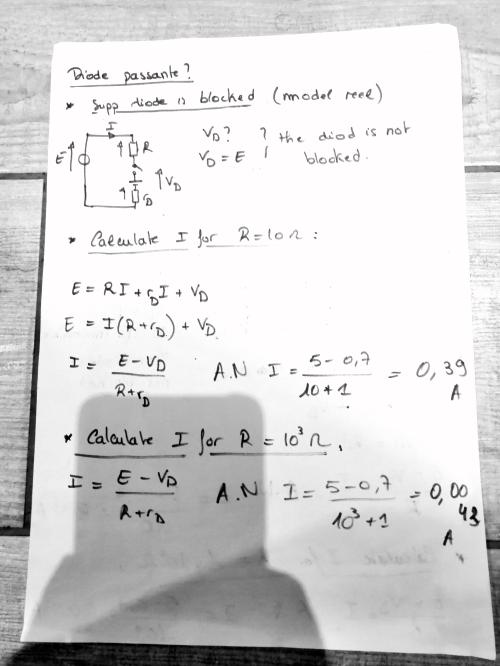 Diode passante?
* Supp diode is blocked (model reel)
I
E
R
VD
rD
VD? ? the diod is not
VD = E ! blocked.
* Calculate I for R=10Ω :
E = RI + rDI + VD
E = I(R+rD) + VD
I = E-VD / R+rD A.N I = 5-0,7 / 10+1 = 0,39 A
* Calculate I for R = 10³ Ω,
I = E - VD / R+rD A.N I = 5-0,7 / 10³+1 = 0,0043 A